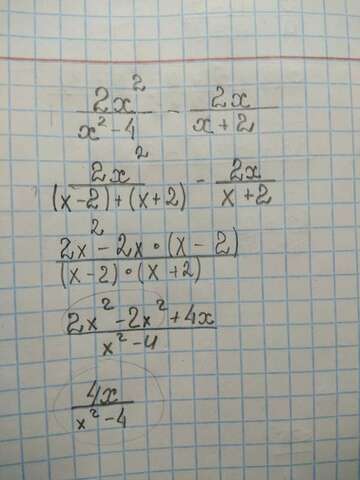 2x²/(x²-4) - 2x/(x+2)
2x²/((x-2)+(x+2)) - 2x/(x+2)
(2x²-2x·(x-2))/((x-2)·(x+2))
(2x²-2x²+4x)/(x²-4)
4x/(x²-4)